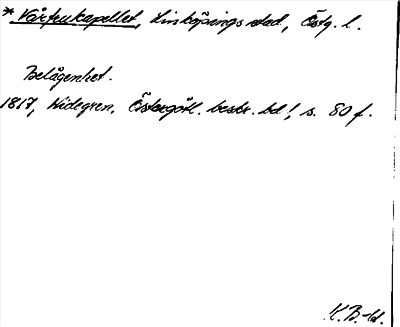 * Vårfrukapellet, Linköpings stad, Östg. l.
Belägenhet.
1817, Widegren, Östergötl. beskr. bd 1, s. 80 f.
K. B-d.